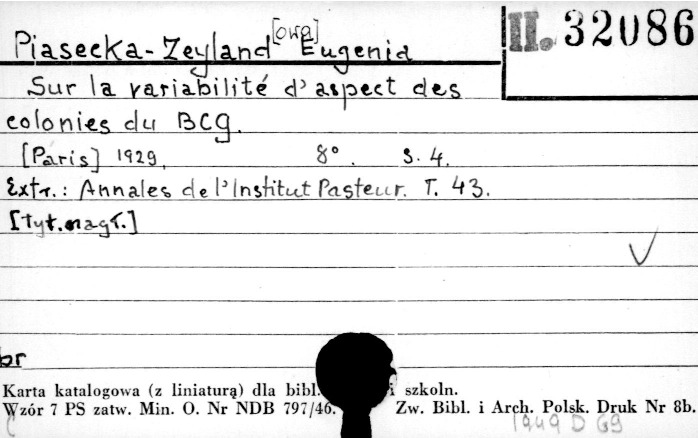 II. 32086
Piasecka-Zeyland[owa] Eugenia
Sur la variabilité d'aspect des
colonies du BCG.
[Paris] 1929, 8°. S. 4.
Extr.: Annales de l'Institut Pasteur. T. 43.
[Tyt. nagł.]
br
Karta katalogowa (z liniaturą) dla bibl. i szkoln.
Wzór 7 PS zatw. Min. O. Nr NDB 797/46. Zw. Bibl. i Arch. Polsk. Druk Nr 8b.
1949 D 69